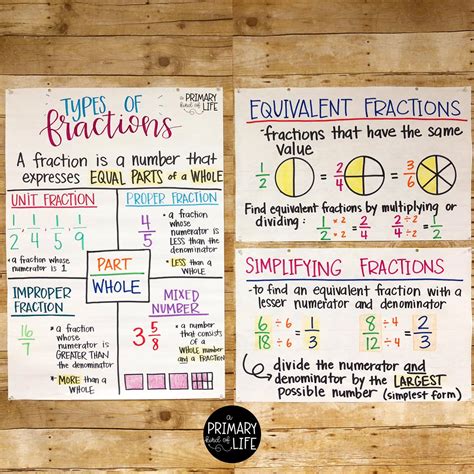 TYPES OF
fractions
a
PRIMARY
kind of
LIFE
A fraction is a number that
expresses EQUAL PARTS of a WHOLE
UNIT FRACTION
1/2 1/4 1/5 1/9
• a fraction whose
numerator is 1
PROPER FRACTION
4/5
• a fraction
whose
numerator is
LESS than the
denominator
• LESS than a
WHOLE
PART
WHOLE
IMPROPER
FRACTION
16/7
• a fraction
whose
numerator is
GREATER THAN
the denominator
• MORE than a
whole
MIXED
NUMBER
3 5/8
• a number that
consists of a
WHOLE number
and a FRACTION
EQUIVALENT FRACTIONS
-fractions that have the same
value
1/2 = 2/4 = 3/6
Find equivalent fractions by multiplying or
dividing:
1 × 2 = 2
2 × 2 = 4
2 ÷ 2 = 1
4 ÷ 2 = 2
SIMPLIFYING FRACTIONS
-to find an equivalent fraction with a
lesser numerator and denominator
6 ÷ 6 = 1
18 ÷ 6 = 3
8 ÷ 4 = 2
12 ÷ 4 = 3
divide the numerator and
denominator by the LARGEST
possible number (simplest form)
a
PRIMARY
kind of
LIFE